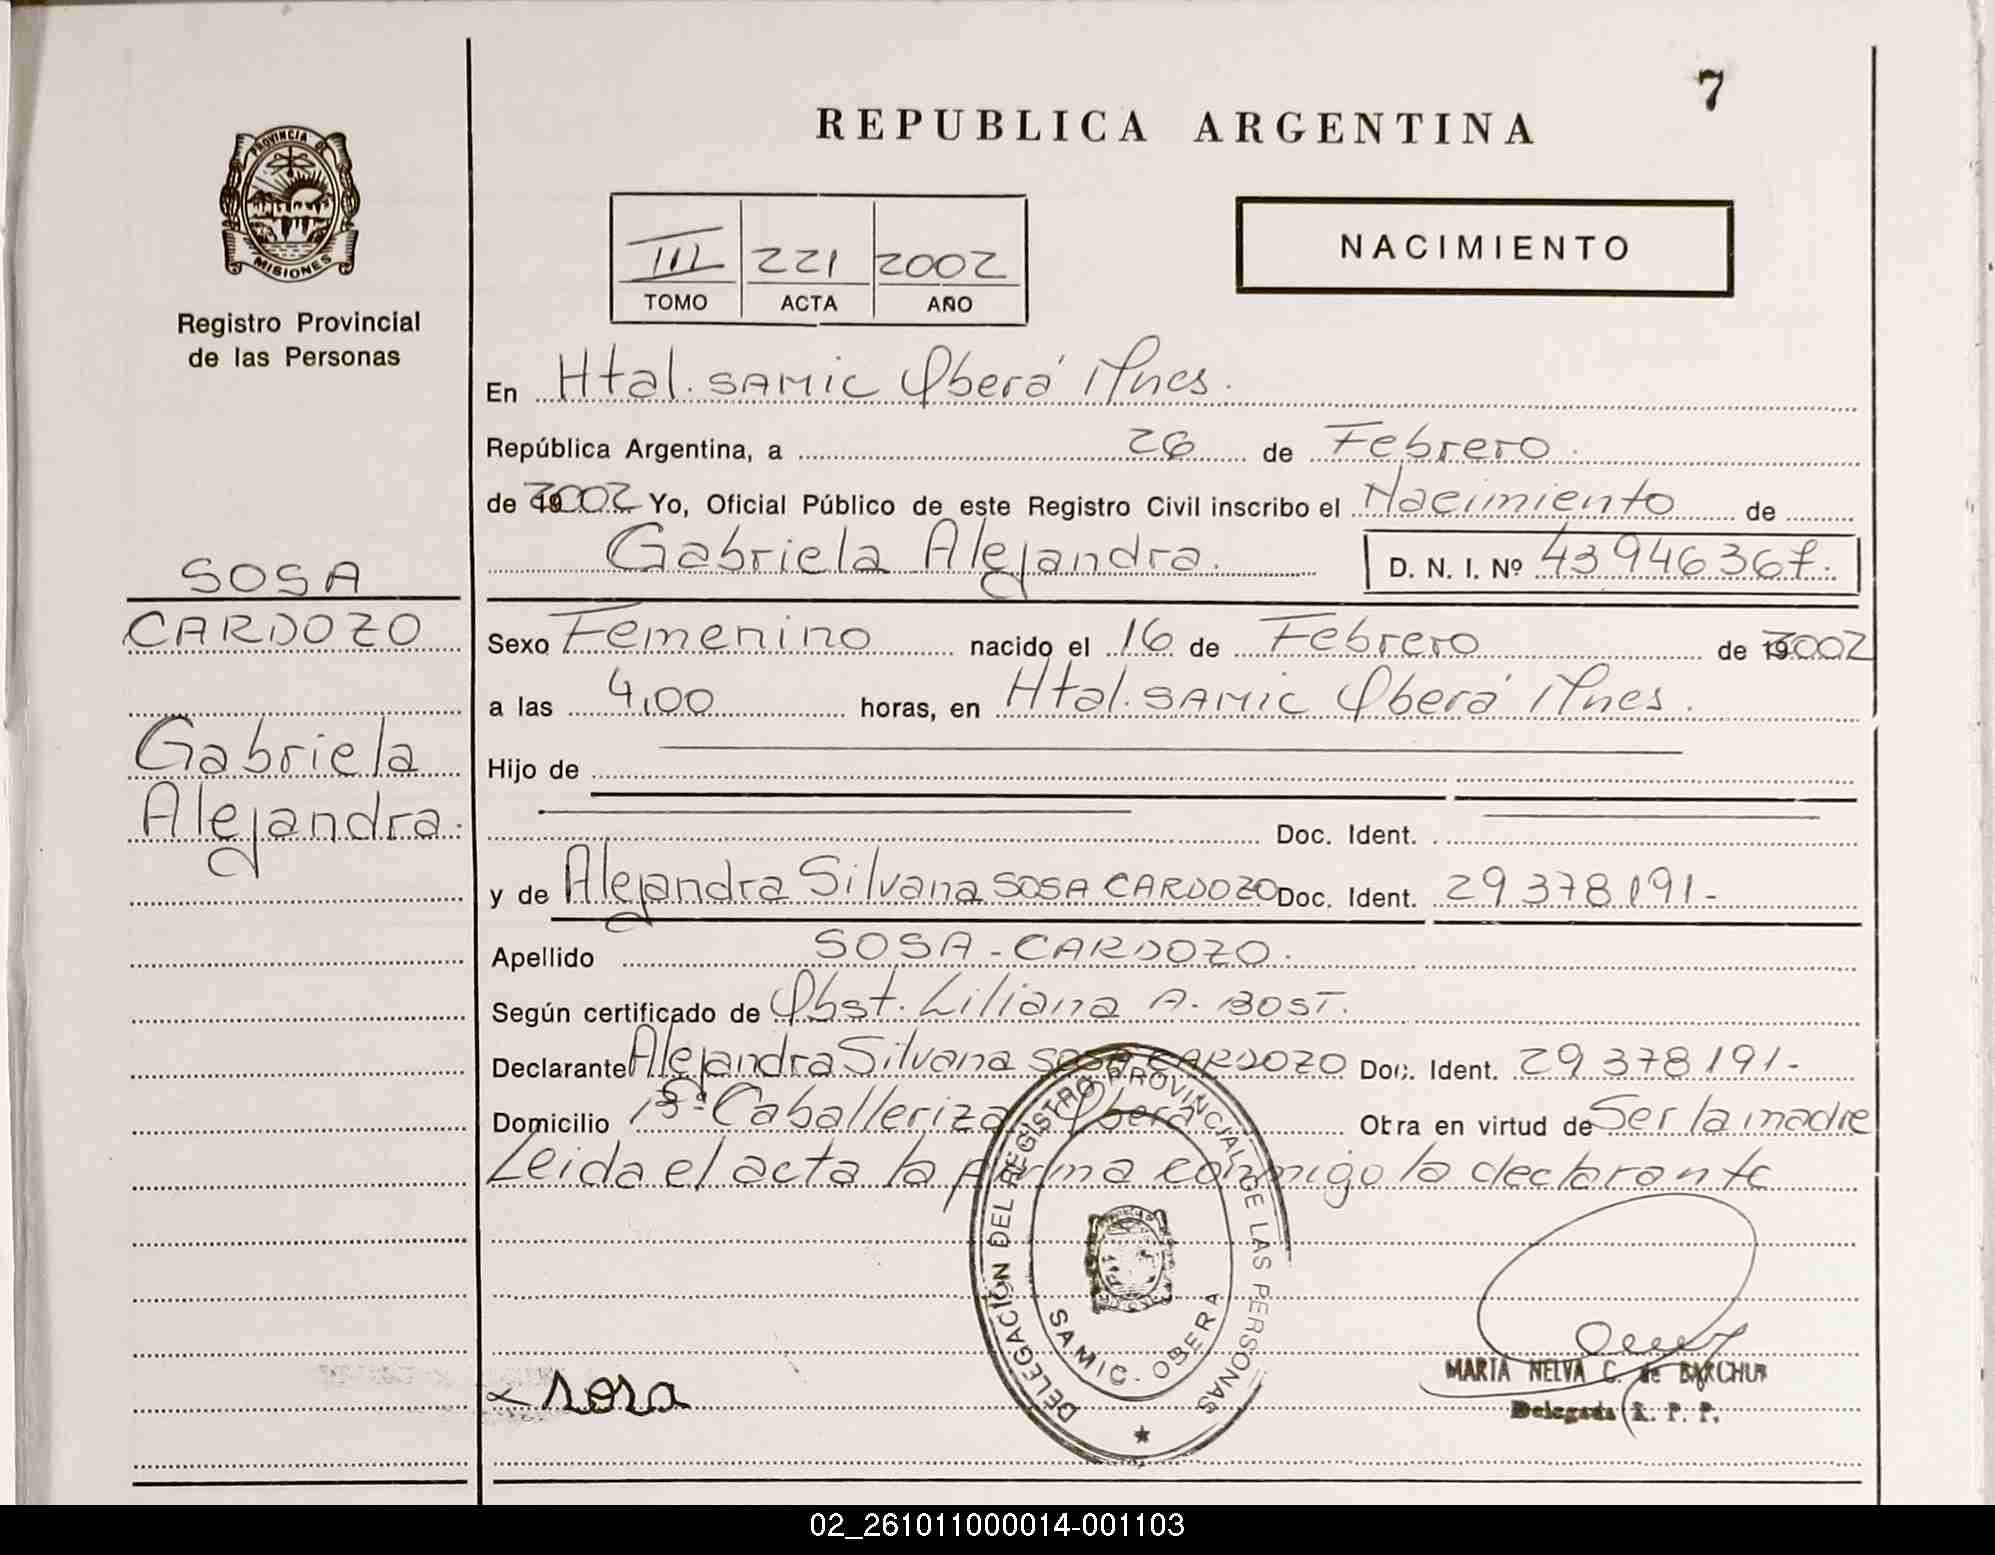 7
REPUBLICA ARGENTINA
PROVINCIA DE
MISIONES
Registro Provincial
de las Personas
III 221 2002
TOMO ACTA AÑO
NACIMIENTO
En Htal. SAMIC Oberá Mnes.
República Argentina, a 26 de Febrero
de 2002 Yo, Oficial Público de este Registro Civil inscribo el Nacimiento de
Gabriela Alejandra. D. N. I. Nº 43946367.
SOSA
CARDOZO
Gabriela
Alejandra.
Sexo Femenino nacido el 16 de Febrero de 2002
a las 4,00 horas, en Htal. SAMIC Oberá Mnes.
Hijo de
Doc. Ident.
y de Alejandra Silvana SOSA CARDOZO Doc. Ident. 29378191-
Apellido SOSA - CARDOZO.
Según certificado de Obst. Liliana A. BOST.
Declarante Alejandra Silvana SOSA CARDOZO Doc. Ident. 29378191-
Domicilio Bº Caballeriza Oberá Obra en virtud de Ser la madre
Leida el acta la firma conmigo la declarante
DELEGACIÓN DEL REGISTRO PROVINCIAL DE LAS PERSONAS
SAMIC - OBERA
sosa
MARIA NELVA C. de BARCHUR
Delegada R. P. P.
02_261011000014-001103